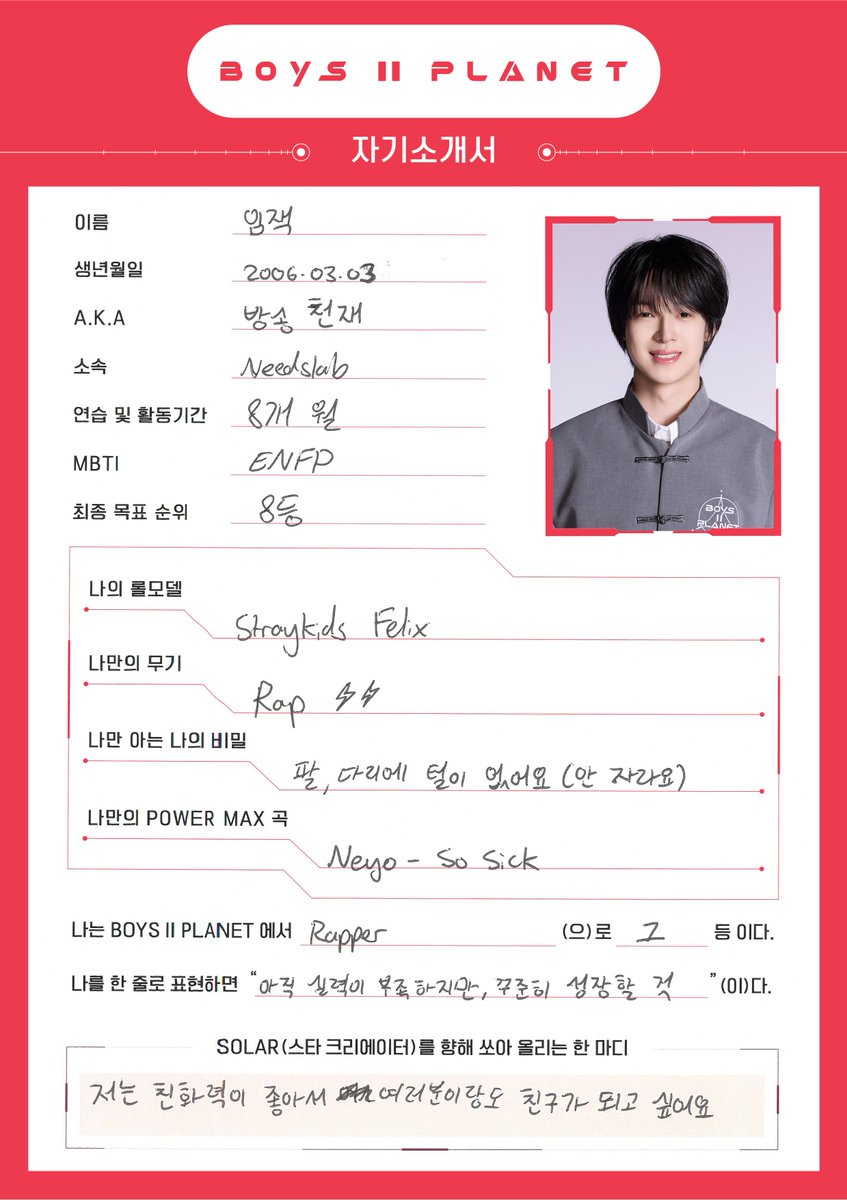 BOYS II PLANET
자기소개서
이름 임잭
생년월일 2006.03.03
A.K.A 방송 천재
소속 Needslab
연습 및 활동기간 8개 월
MBTI ENFP
최종 목표 순위 8등
BOYS
II
PLANET
나의 롤모델
Straykids Felix
나만의 무기
Rap
나만 아는 나의 비밀
팔, 다리에 털이 없어요 (안 자라요)
나만의 POWER MAX 곡
Neyo - So Sick
나는 BOYS II PLANET 에서 Rapper (으)로 1 등 이다.
나를 한 줄로 표현하면 “아직 실력이 부족하지만, 꾸준히 성장할 것” (이)다.
SOLAR(스타 크리에이터)를 향해 쏘아 올리는 한 마디
저는 친화력이 좋아서 여러분이랑도 친구가 되고 싶어요